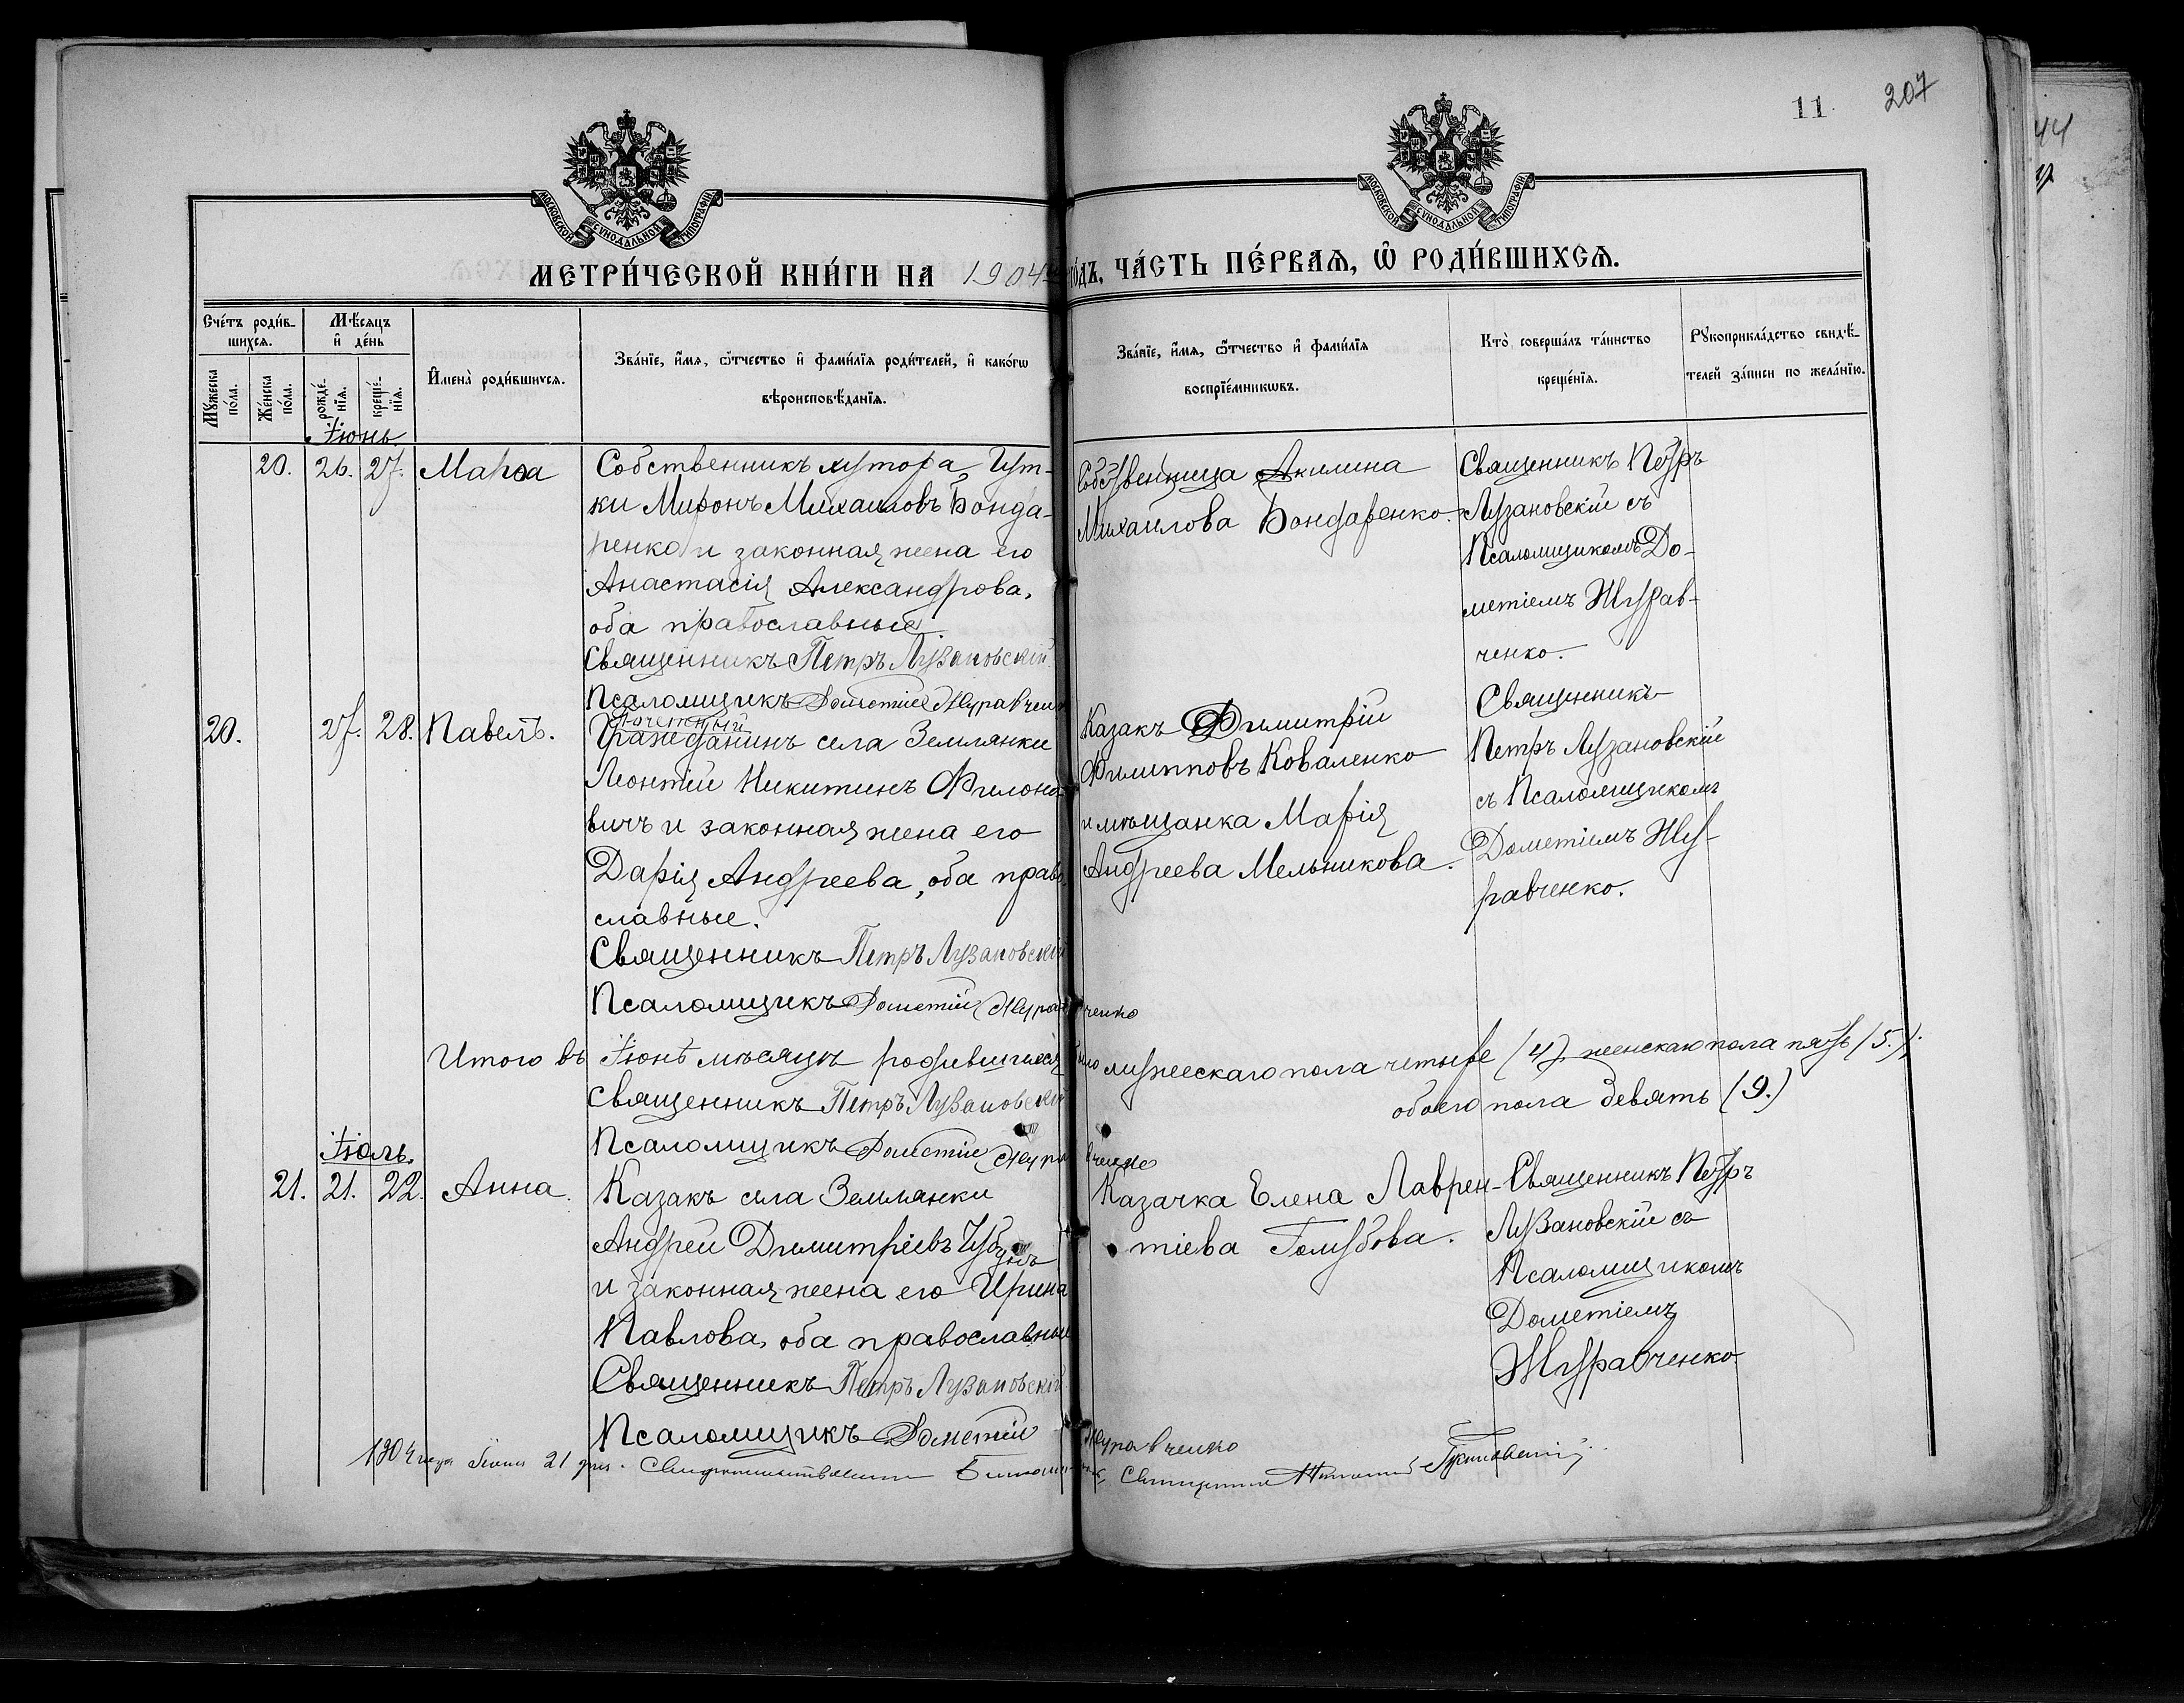 11
207
МОСКОВСКОЙ СѴНОДАЛЬНОЙ ТИПОГРАФІИ
МОСКОВСКОЙ СѴНОДАЛЬНОЙ ТИПОГРАФІИ
МЕТРИ́ЧЕСКОЙ КНИ́ГИ НА 1904 го́дъ, ЧА́СТЬ ПЕ́РВАѦ, Ѡ҆ РОДИ́ВШИХСѦ.
Сче́тъ роди́в-
шихсѧ.
Мꙋ́жеска
по́ла.
Же́нска
по́ла.
Мѣ́сѧцъ
и҆ де́нь
рожде́-
нїѧ.
креще́-
нїѧ.
И҆мена̀ роди́вшихсѧ.
Зва́нїе, и҆́мѧ, ѻ҆́тчество и҆ фами́лїѧ роди́телей, и҆ како́гѡ
вѣроисповѣ́данїѧ.
Зва́нїе, и҆́мѧ, ѻ҆́тчество и҆ фами́лїѧ
воспрїе́мникѡвъ.
Кто̀ соверша́лъ та́инство
креще́нїѧ.
Рꙋкоприкла́дство свидѣ́-
телей за́писи по жела́нїю.
Іюнь.
20. 26. 27. Марѳа
Собственникъ хутора Гут-
ки Миронъ Михаиловъ Бонда-
ренко и законная жена его
Анастасія Александрова,
оба православные.
Священникъ Петръ Лузановскій
Псаломщикъ Дометій Журавченко
Собственница Акилина
Михаилова Бондаренко.
Священникъ Петръ
Лузановскій съ
Псаломщикомъ До-
метіемъ Журав-
ченко.
20. 27. 28. Павелъ.
Почетный
Гражданинъ села Землянки
Леонтій Никитинъ Филоно-
вичъ и законная жена его
Дарія Андреева, оба право-
славные.
Священникъ Петръ Лузановскій
Псаломщикъ Дометій Журавченко
Казакъ Димитрій
Филипповъ Коваленко
и мѣщанка Марія
Андреева Мельникова.
Священникъ
Петръ Лузановскій
съ Псаломщикомъ
Дометіемъ Жу-
равченко.
Итого въ Іюнѣ мѣсяцѣ родившихся было мужескаго пола четыре (4) женскаго пола пять (5.),
обоего пола девять (9.)
Священникъ Петръ Лузановскій
Псаломщикъ Дометій Журавченко
Іюль.
21. 21. 22. Анна.
Казакъ села Землянки
Андрей Димитріевъ
и законная жена его Ирина
Павлова, оба православные
Священникъ Петръ Лузановскій
Псаломщикъ Дометій Журавченко
Казачка Елена Лаврен-
тіева Голубова.
Священникъ Петръ
Лузановскій съ
Псаломщикомъ
Дометіемъ
Журавченко
1904 года 21 дня. Священникъ